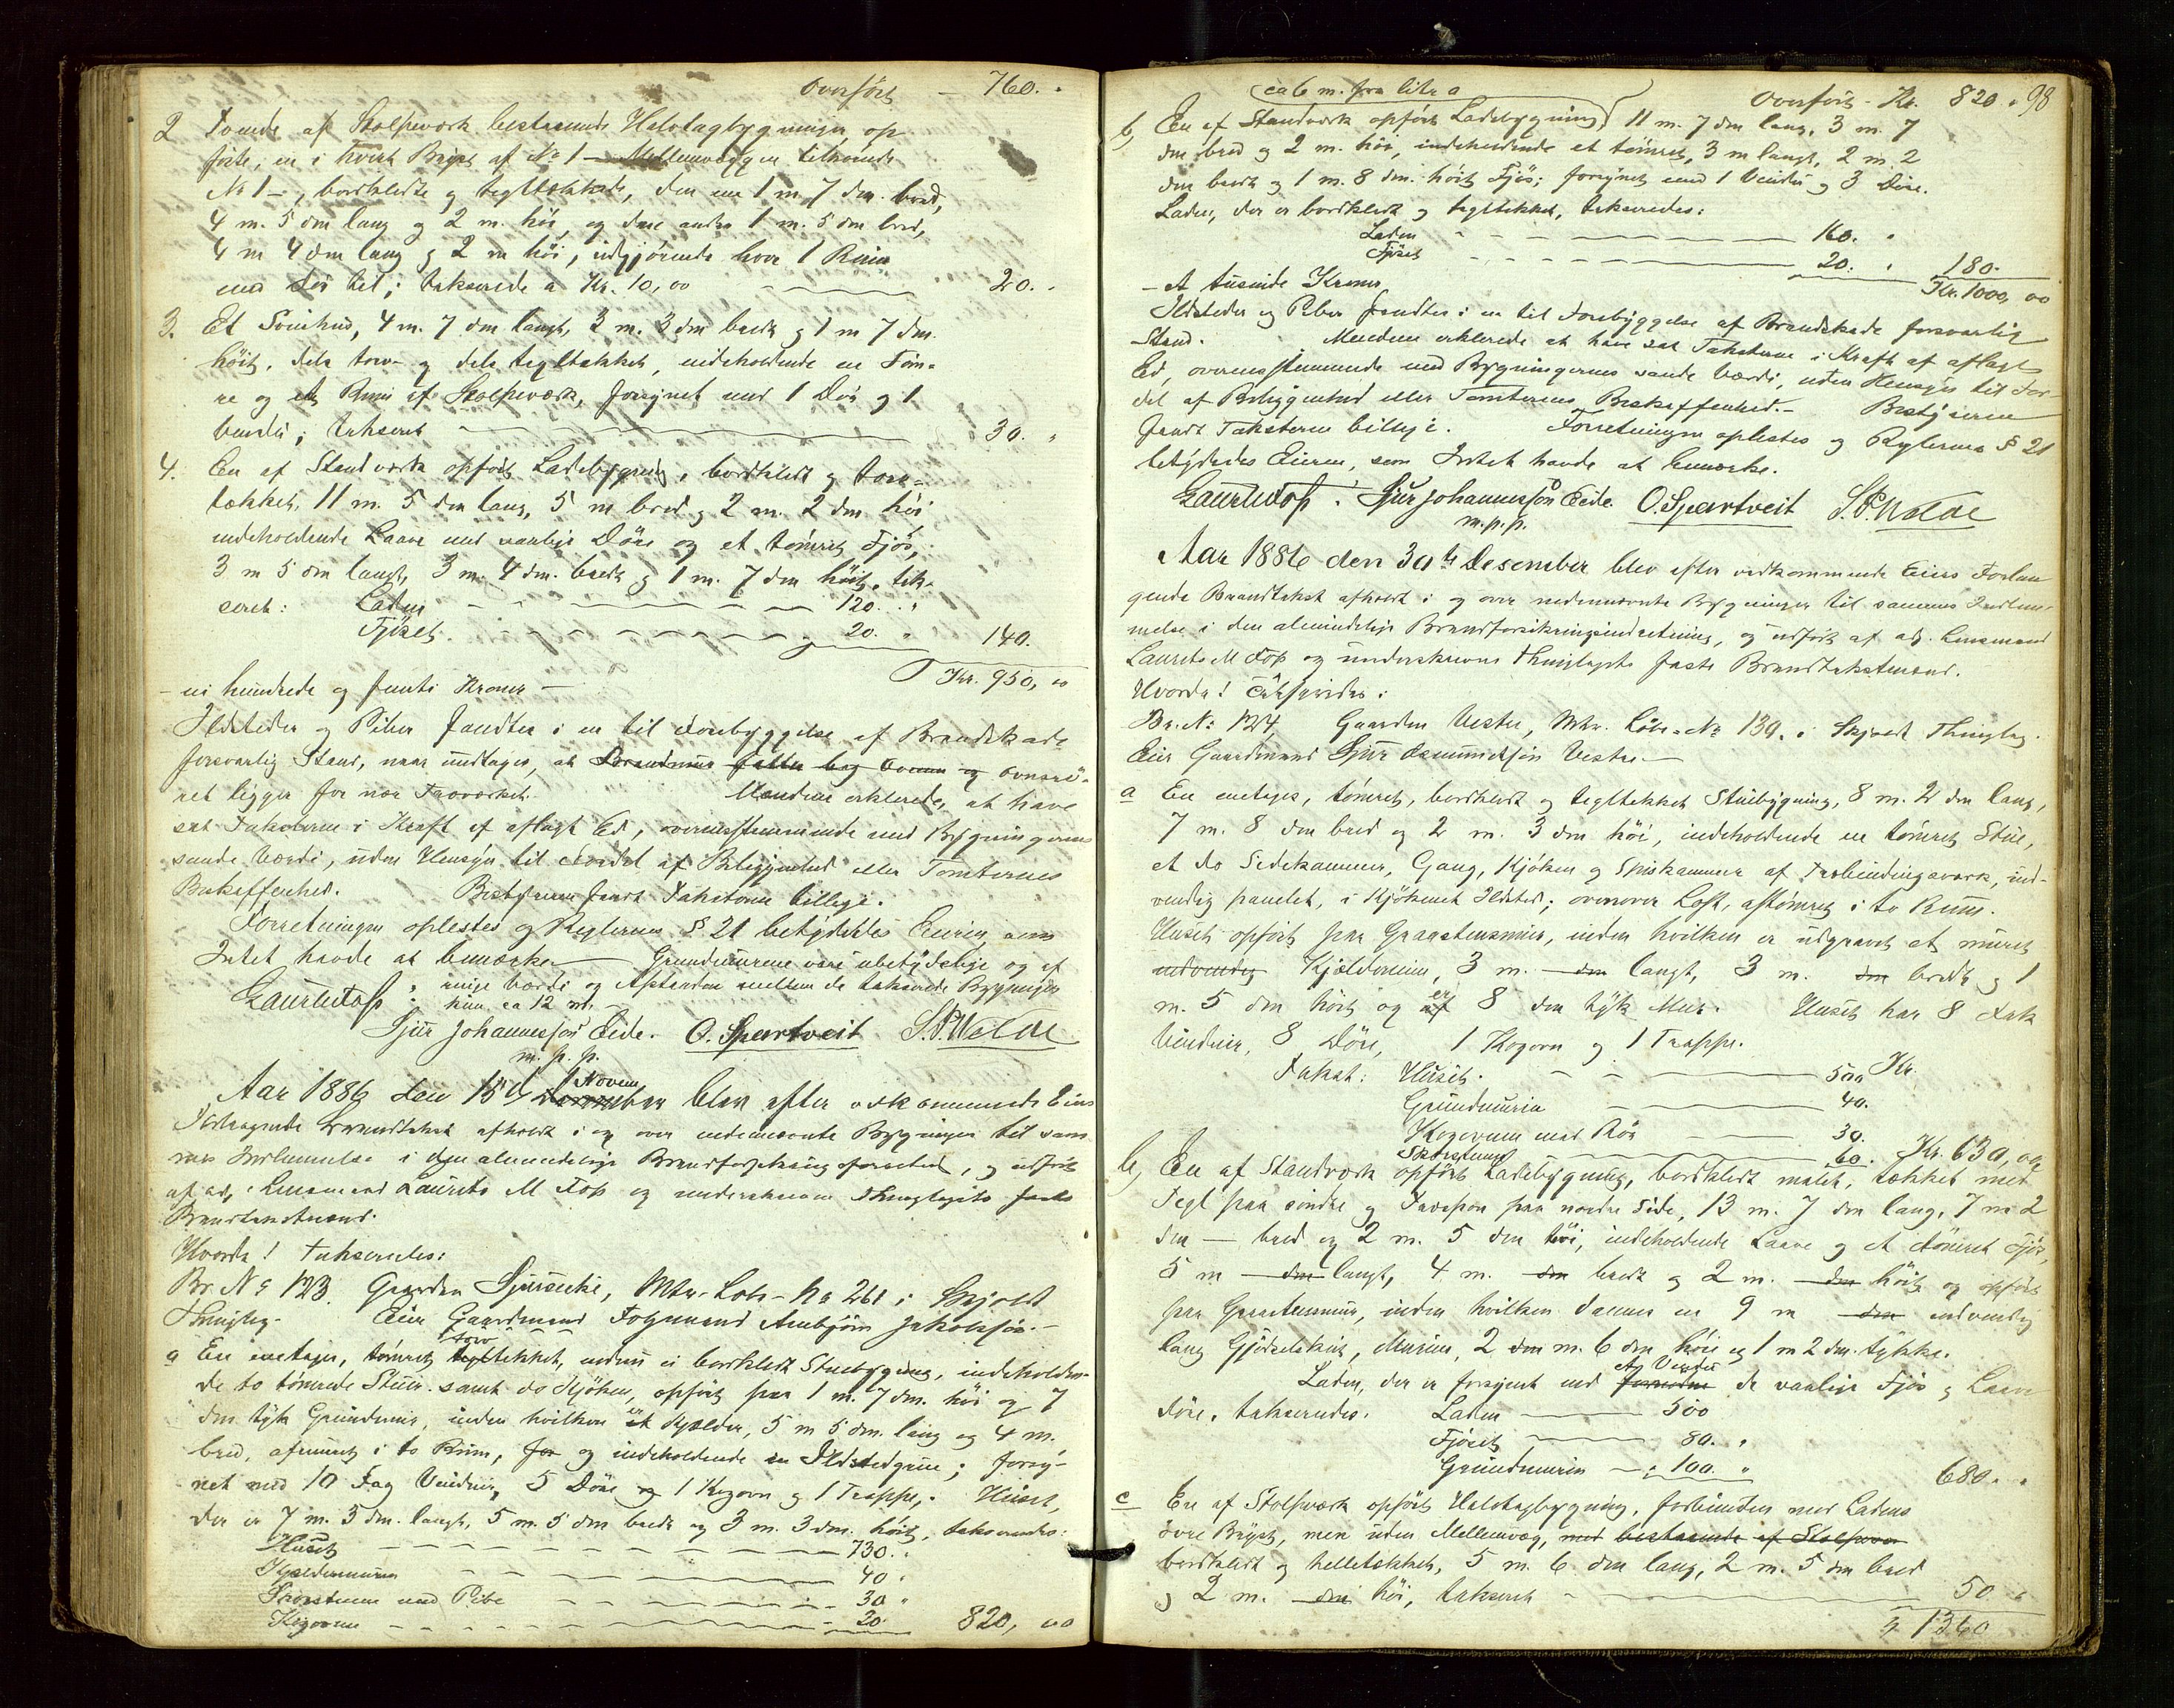 Overført — 760. "
2 Tvende af Stolpeverk bestaaende Halvtagbygninger, op
førte, en i hvert Bryst af № 1 — Mellemvæggen tilhørende
№ 1 —, bordklædte og tegltækkede, den ene 1 m 7 dm. bred,
4 m. 5 dm lang og 2 m. høi, og den anden 1 m. 5 dm bred,
4 m 4 dm lang og 2 m høi, udgjørende hver 1 Rum
med Dør til; takserede a Kr. 10,00 — 20. "
3. Et Smihus, 4 m. 7 dm langt, 3 m. 3 dm bredt og 1 m 7 dm.
høit, dels torv- og dels tegltækket, indeholdende en
re og et Rum af Stolpeværk, forsynet med 1 Dør og 1
Vindu; takseret — 30. "
4. En af Standværk opført Ladebygning, bordklædt og torv-
tækket, 11 m. 5 dm lang, 5 m bred og 2 m. 2 dm høi
indeholdende Laave med vanlige Døre og et tømret Fjøs,
3 m 5 dm langt, 3 m. 4 dm. bredt og 1 m. 7 dm høit, tak-
seret: Laden — 120. "
Fjøset — 20. " 140.
Kr. 950, 00
— ni hundrede og femti Kroner —
Ildsteder og Piber fandtes i en til Forebyggelse af Brandskade
forsvarlig Stand, naar undtages, at Brandmur fattes bag Ovnen og ovnsrø-
ret ligger for nær Træværket. Mændene erklærede, at have
sat Taksterne i Kraft af aflagt Ed, overensstemmende med Bygningernes
sande Værdi, uden Hensyn til Fordel af Beliggenhed eller Tomternes
Beskaffenhed. Bestyreren fandt Taksterne billige.
Forretningen oplæstes og Reglernes § 21 betydedes Eieren, som
Intet havde at bemærke — Grundmurene vare ubetydelige og af
ringe Værdi og Afstanden mellem de takserede Bygninger
kun ca 12 m. —
Lauritz M Foss Sjur Johannessøn Eide. O. Spartveit S. P. Welde
m. p. p.
Aar 1886 den 15de Novem December blev efter vedkommende Eiers
Forlangende Brandtakst afholdt i og over nedennævnte Bygninger til sam-
mes Indlemmelse i den almindelige Brandforsikrings, og udført
af adj. Lensmand Laurits M Foss og underskrevne Thinglagets faste
Brandtakstmænd.
Hvorda! takseredes:
Br. № 123. Gaarden, Mtr. Løb. № 261 i Skjold
Thinglag. Eier Gaardmand Folgemand Jakobsøn. —
a En eenetages, tømret torv tegltækket, endnu ei bordklædt Stuebygning, indeholden-
de to tømrede Stuer samt do Kjøken, opført paa 1 m. 7 dm. høi og 7
dm tyk Grundmur, inden hvilken er et Kjælder, 5 m 5 dm. lang og 4 m.
bred, afmuret i to Rum, for og indeholdende en Ildstedgrue; forsy-
net med 10 Fag Vinduer, 5 Døre og 1 Kogovn og 1 Trappe. Huset,
der er 7 m. 3 dm. langt, 5 m. 5 dm bredt og 3 m. 3 dm. høit, takseredes:
Huset — 730. "
Kjældermuren — 40 "
Skorstenen med Pibe — 30 "
Kogovnen — 20 820, 00
Overført — Kr. 820 " 98
ca 6 m. fra litr. a
b, En af Standværk opført Ladebygning, 11 m. 7 dm lang, 3 m. 7
dm bred og 2 m. høi, indeholdende et tømret, 3 m langt, 2 m. 2
dm bredt og 1 m. 8 dm. høit Fjøs; forsynet med 1 Vindu og 3 Døre.
Laden, der er bordklædt og tegltækket, takseredes:
Laden — 160. "
Fjøset — 20. " 180.
— Et tusinde Kroner Kr. 1000, 00
Ildsteder og Piber fandtes i en til Forebyggelse af Brandskade forsvarlig
Stand. Mændene erklærede at have sat Taksterne i Kraft af aflagt
Ed, overensstemmende med Bygningernes sande Værdi, uden Hensyn til For
del af Beliggenhed eller Tomternes Beskaffenhed. — Bestyreren
fandt Taksterne billige. Forretningen oplæstes og Reglernes § 21
betydedes Eieren, som Intet havde at bemærke.
Lauritz M Foss. Sjur Johannessøn Eide. O. Spartveit S. P. Welde
m. p. p.
Aar 1886 den 30te Desember blev efter vedkommende Eiers Forlan
gende Brandtakst afholdt i og over nedennævnte Bygninger til sammes Indlem-
melse i den almindelige Brandforsikringsindretning, og udført af adj. Lensmand
Laurits M Foss og underskrevne Thinglagets faste Brandtakstmænd.
Hvorda! Takseredes:
Br. № 124, Gaarden Vestre, Mtr. Løb. № 139. i Skjold Thinglag.
Eier Gaardmand Sjur Aamundsøn Vestre —
a En eenetages, tømret, bordklædt og tegltækket Stuebygning, 8 m. 2 dm lang,
7 m. 8 dm bred og 2 m. 3 dm høi, indeholdende en tømret Stue,
et do Sidekammer, Gang, Kjøken og Spiskammer af Træbindingsværk, ind-
vendig panelet, i Kjøkenet Ildsted; ovenover Loft, aftømret i to Rum.
Huset opført paa Graastensmur, inden hvilken er udgravet et muret
indvendig Kjælderrum, 3 m. — dm langt, 3 m. dm bredt og 1
m. 5 dm høit og er af 8 dm tyk Mur. Huset har 8 Fak
Vinduer, 8 Døre, 1 Kogovn og 1 Trappe.
Takst: Huset — 500 Kr.
Grundmuren — 40.
Kogovnen med Rør — 30.
Skorstenen — 60. Kr. 630, 00
b, En af Standværk opført Ladebygning, bordklædt malet, tækket med
Tegl paa søndre og Træspon paa nordre Side, 13 m. 7 dm lang, 7 m 2
dm — bred og 2 m. 5 dm høi, indeholdende Laave og et tømret Fjøs,
5 m — dm langt, 4 m. dm bredt og 2 m. — dm høit og opført
paa Graastensmur, inden hvilken dannes en 9 m dm indvendig
lang Gjødselskur, Muren, 2 dm m. 6 dm høi og 1 m 2 dm. tykke.
Laden, der er forsynet med Et Vindu de vanlige Fjøs og Laave
døre, takseredes. Laden — 500
Fjøset — 80. "
Grundmuren — 100. " 680. "
c En af Stolpeværk opført Halvtagbygning, forbunden med Ladens
øvre Bryst, men uden Mellemvæg, med bestaaende af Stolpevær
bordklædt og helletækket, 5 m. 6 dm lang, 2 m. 5 dm bred
og 2 m. — dm høi, takseret — 50 "
1360